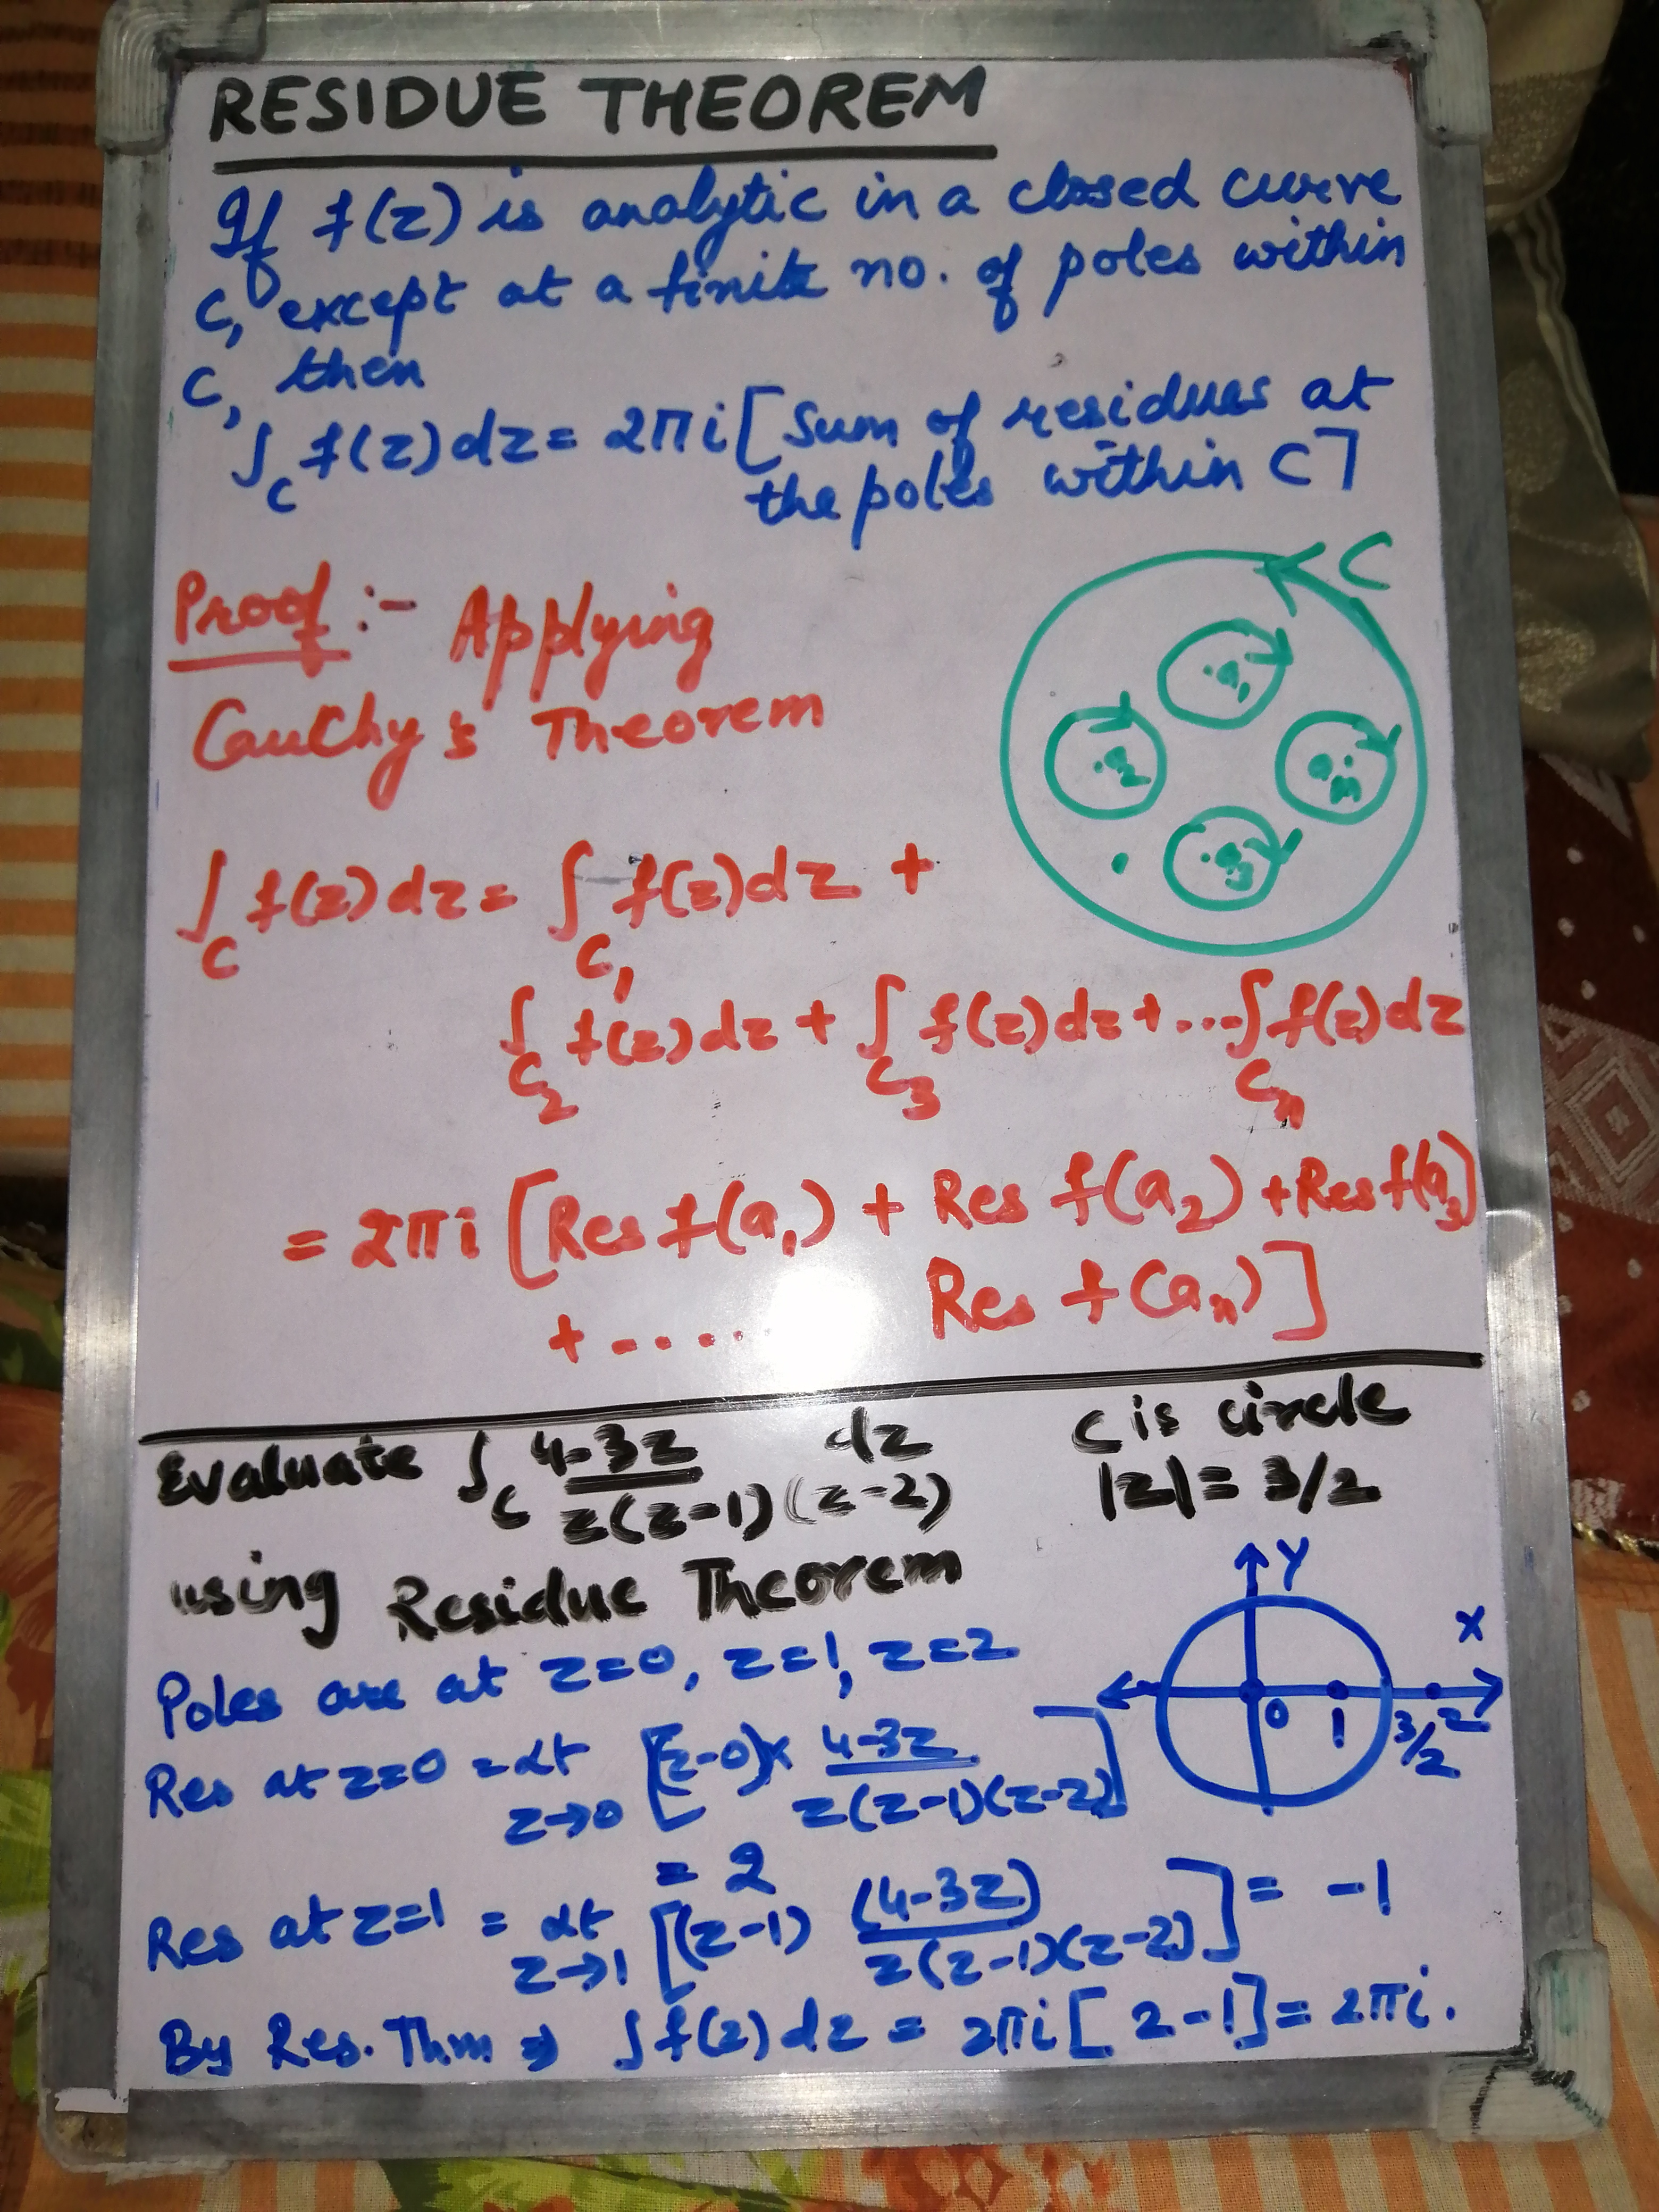 RESIDUE THEOREM
If f(z) is analytic in a closed curve
C, except at a finite no. of poles within
C, then
∫_C f(z)dz = 2πi [Sum of residues at
the poles within C]
C
.a₁
.a₂
a.n
.a₃
Proof :- Applying
Cauchy's Theorem
∫_C f(z)dz = ∫_C₁ f(z)dz +
∫_C₂ f(z)dz + ∫_C₃ f(z)dz + ... ∫_Cn f(z)dz
= 2πi [Res f(a₁) + Res f(a₂) + Res f(a₃)
+ ..... Res f(an)]
Evaluate ∫_C 4-3z / z(z-1)(z-2) dz C is circle
|z| = 3/2
using Residue Theorem
Y
X
0 1 3/2 2
Poles are at z=0, z=1, z=2
Res at z=0 = Lt z→0 [(z-0)× 4-3z / z(z-1)(z-2)]
= 2
Res at z=1 = Lt z→1 [(z-1) (4-3z) / z(z-1)(z-2)] = -1
By Res. Thm ⇒ ∫f(z)dz = 2πi[2-1] = 2πi.